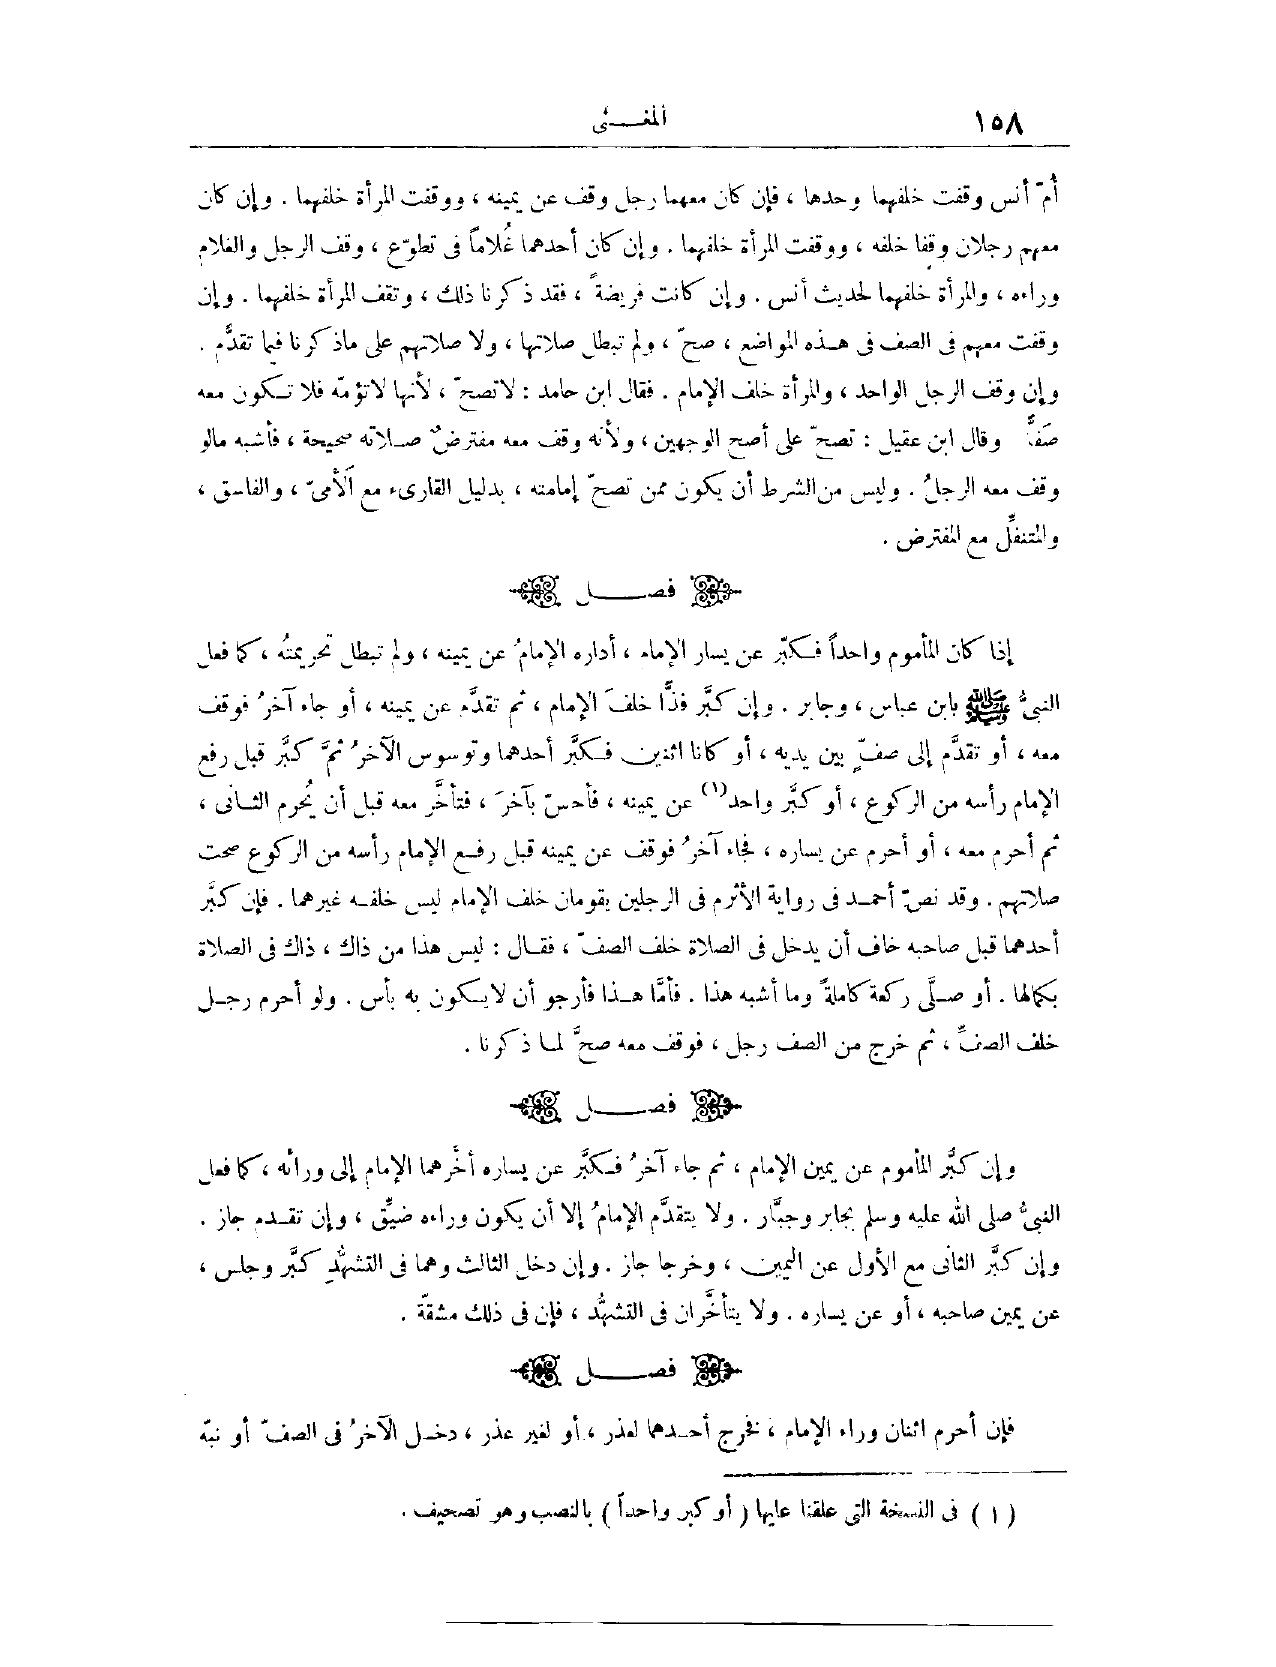 ١٥٨
المغـــنى
أمّ أنس وقفت خلفهما وحدها ، فإن كان معهما رجل وقف عن يمينه ، ووقفت المرأة خلفهما . وإن كان
معهم رجلان وقفا خلفه ، ووقفت المرأة خلفهما . وإن كان أحدهما غُلاماً فى تطوّع ، وقف الرجل والغلام
وراءه ، والمرأة خلفهما لحديث أنس . وإن كانت فريضةً ، فقد ذكرنا ذلك ، وتقف المرأة خلفهما . وإن
وقفت معهم فى الصف فى هـذه المواضع ، صحّ ، ولم تبطل صلاتها ، ولا صلاتهم على ماذكرنا فيما تقدَّم .
وإن وقف الرجل الواحد ، والمرأة خلف الإمام . فقال ابن حامد : لاتصحّ ، لأنها لاتؤمّه فلا تـكون معه
صَفًّا وقال ابن عقيل : تصحّ على أصح الوجهين ، ولأنه وقف معه مفترضٌ صـلاته صحيحة ، فأشبه مالو
وقف معه الرجلُ . وليس من الشرط أن يكون ممن تصحّ إمامته ، بدليل القارىء مع الأمىّ ، والفاسق ،
والمتنفِّل مع المفترض .
فصــــل
إذا كان المأموم واحداً فـكبّر عن يسار الإمام ، أداره الإمامُ عن يمينه ، ولم تبطل تحريمتُه ، كما فعل
النبىُّ ﷺ بابن عباس ، وجابر . وإن كبَّر فذًّا خلفَ الإمام ، ثم تقدَّم عن يمينه ، أو جاء آخرُ فوقف
معه ، أو تقدَّم إلى صفٍّ بين يديه ، أو كانا اثنين فـكبَّر أحدهما وتوسوس الآخرُ ثمَّ كبَّر قبل رفع
الإمام رأسه من الركوع ، أو كبَّر واحد(١) عن يمينه ، فأحسّ بآخرَ ، فتأخَّر معه قبل أن يُحرم الثـانى ،
ثم أحرم معه ، أو أحرم عن يساره ، فجاء آخرُ فوقف عن يمينه قبل رفـع الإمام رأسه من الركوع صحت
صلاتهم . وقد نصّ أحمـد فى رواية الأثرم فى الرجلين يقومان خلف الإمام ليس خلفـه غيرهما . فإن كبَّر
أحدهما قبل صاحبه خاف أن يدخل فى الصلاة خلف الصفّ ، فقـال : ليس هذا من ذاك ، ذاك فى الصلاة
بكمالها . أو صـلَّى ركعة كاملةً وما أشبه هذا . فأمَّا هـذا فأرجو أن لايـكون به بأس . ولو أحرم رجـل
خلف الصفِّ ، ثم خرج من الصف رجل ، فوقف معه صحَّ لمـا ذكرنا .
فصــــل
وإن كبَّر المأموم عن يمين الإمام ، ثم جاء آخرُ فـكبَّر عن يساره أخَّرهما الإمام إلى ورائه ، كما فعل
النبىُّ صلى الله عليه وسلم بجابر وجبَّار . ولا يتقدَّم الإمامُ إلا أن يكون وراءه ضيِّق ، وإن تقـدم جاز .
وإن كبَّر الثانى مع الأول عن اليمين ، وخرجا جاز . وإن دخل الثالث وهما فى التشهُّدِ كبَّر وجلس ،
عن يمين صاحبه ، أو عن يساره . ولا يتأخَّران فى التشهُّد ، فإن فى ذلك مشقّة .
فصــــل
فإن أحرم اثنان وراء الإمام ، فخرج أحـدهما لعذر ، أو لغير عذر ، دخـل الآخرُ فى الصفّ أو نبّه
( ١ ) فى النسخة التى علقنا عليها ( أو كبر واحداً ) بالنصب وهو تصحيف .